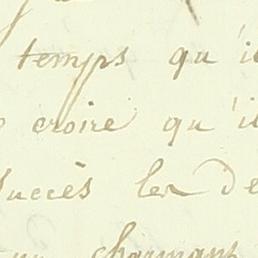 temps qu'il
croire qu'il
succès les de
charmans